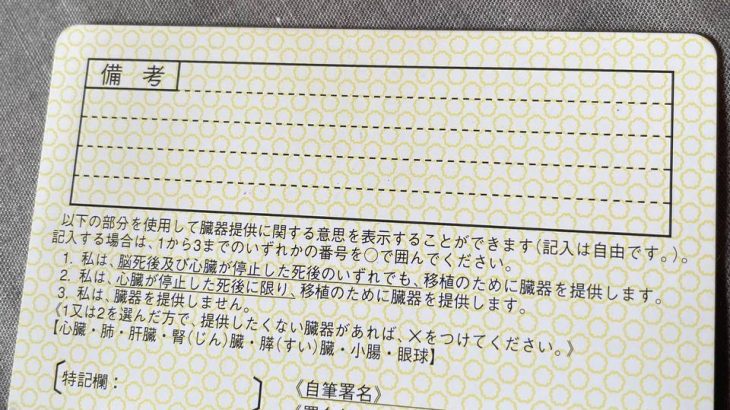 備 考
以下の部分を使用して臓器提供に関する意思を表示することができます(記入は自由です。)。
記入する場合は、1から3までのいずれかの番号を○で囲んでください。
1. 私は、脳死後及び心臓が停止した死後のいずれでも、移植のために臓器を提供します。
2. 私は、心臓が停止した死後に限り、移植のために臓器を提供します。
3. 私は、臓器を提供しません。
《1又は2を選んだ方で、提供したくない臓器があれば、×をつけてください。》
【心臓・肺・肝臓・腎(じん)臓・膵(すい)臓・小腸・眼球】
〔特記欄: 〕 《自筆署名》